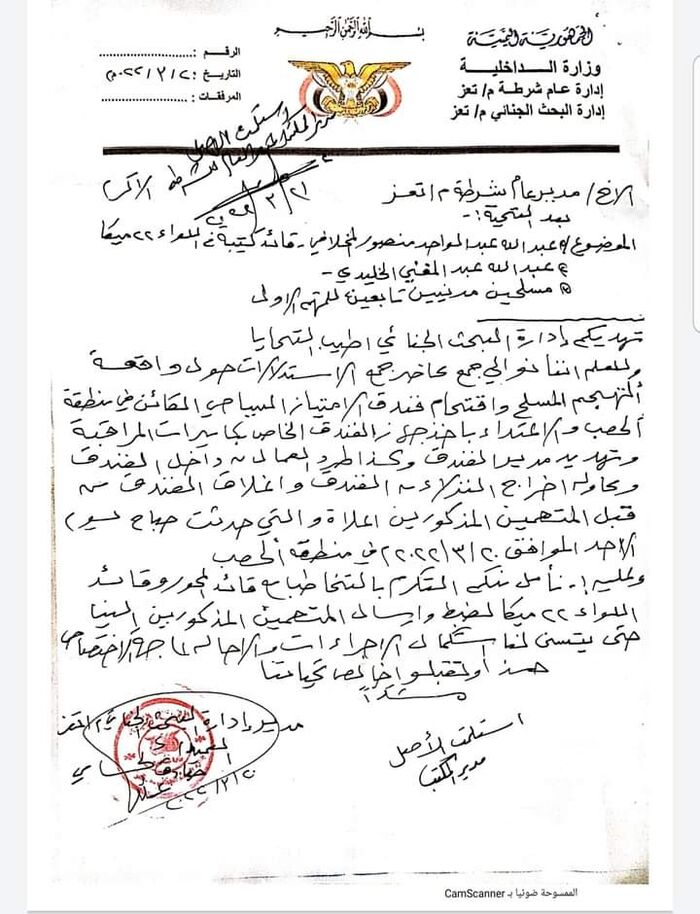 بسم الله الرحمن الرحيم
الجمهورية اليمنية
وزارة الداخلية
إدارة عام شرطة م/ تعز
إدارة البحث الجنائي م/ تعز
الرقم :
التاريخ : ٢٠/٣/٢٠٢٢م
المرفقات :
استلمت الأصل
٢١/٣/٢٠٢٢
الاخ/ مدير عام شرطة م/تعز الاكرم
بعد التحية:-
الموضوع/ عبدالله عبدالواحد منصور المخلافي - قائد كتيبة في اللواء ٢٢ ميكا
عبدالله عبدالغني الخليدي -
مسلحين مدنيين تابعين للمتهم الاولى
تهديكم إدارة البحث الجنائي اطيب التحايا
وللعلم اننا نوالي جمع محاضر جمع الاستدلالات حول واقعة
التهجم المسلح واقتحام فندق الامتياز السياحي الكائن في منطقة
الحصب والاعتداء باخذ جهاز الفندق الخاص بكاميرات المراقبة
وتهديد مدير الفندق وكذا طرد العمال من داخل الفندق
ومحاولة اخراج النزلاء من الفندق واغلاق الفندق من
قبل المتهمين المذكورين اعلاه والتي حدثت صباح يوم
الاحد الموافق ٢٠/٣/٢٠٢٢ في منطقة الحصب
وعليه:- نأمل منكم التكرم بالتخاطب مع قائد المحور وقائد
اللواء ٢٢ ميكا لضبط وارسال المتهمين المذكورين الينا
حتى يتسنى لنا استكمال الاجراءات والاحالة لجهة الاختصاص
هذا وتقبلوا خالص تحياتنا
مدير إدارة البحث الجنائي م/تعز
٢٠/٣/٢٠٢٢
استلمت الأصل
مدير المكتب
الممسوحة ضوئيا بـ CamScanner